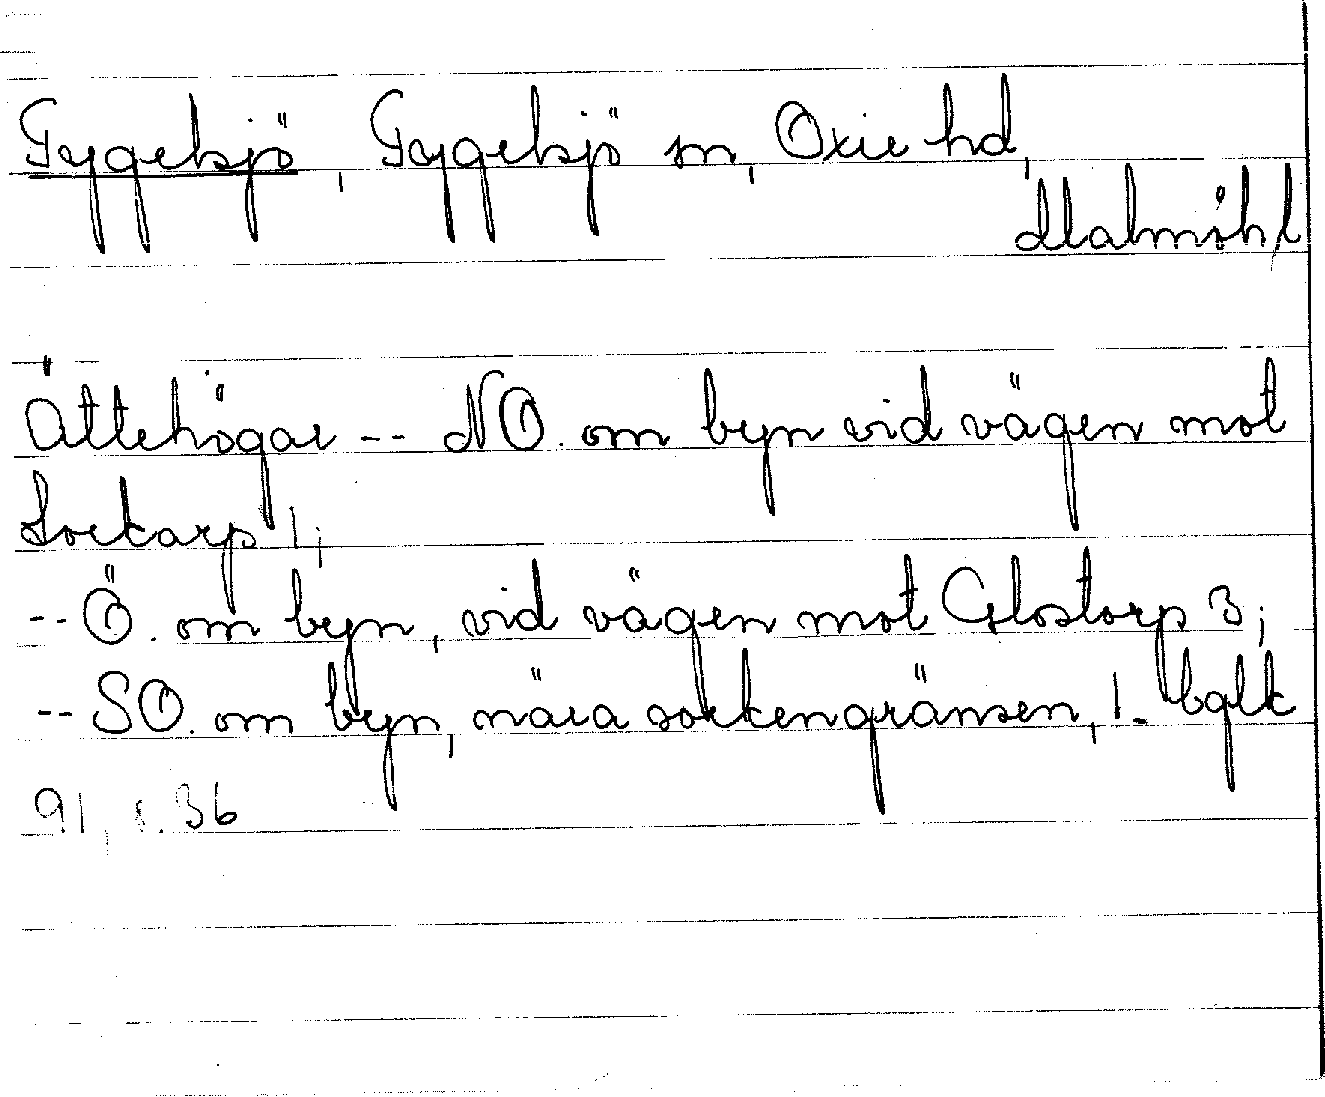 Tygelsjö, Tygelsjö sn, Oxie hd,
Malmöh l
Ättehögar -- NO. om byn vid vägen mot
Lockarp 1;
-- Ö. om byn, vid vägen mot Glostorp 3;
-- SO. om byn, nära sockengränsen, 1. bglk
91, s. 36